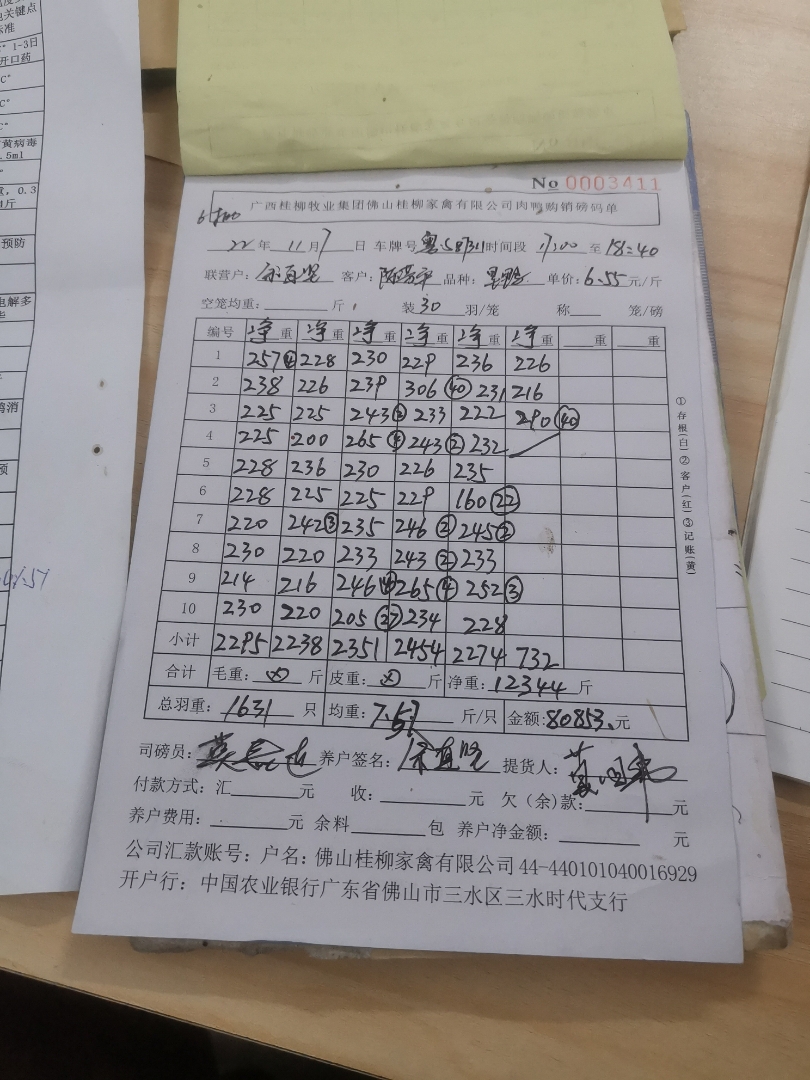 度
均关键点
标准
C° 1-3日
开口药
C°
C°
C°
黄病毒
.5ml
重, 0.3
4斤
预防
电解多
鸡消
预
No 0003411
广西桂柳牧业集团佛山桂柳家禽有限公司肉鸭购销磅码单
22年 11月7日 车牌号 粤 时间段 17:00 至 18:40
联营户: 客户: 品种: 单价: 6.55元/斤
空笼均重: 斤 装30羽/笼 称 笼/磅
编号 净重 净重 净重 净重 净重 净重 重 重
1 257④ 228 230 229 236 226
2 238 226 239 306㊵ 231 216
3 225 225 243② 233 222 290㊵
4 225 200 265④ 243② 232
5 228 236 230 226 235
6 228 225 225 229 160㉒
7 220 242③ 235 246② 245②
8 230 220 233 243② 233
9 214 216 246④ 265④ 252③
10 230 220 205㉗ 234 228
小计 2295 2238 2351 2454 2274 732
合计 毛重: 斤 皮重: 斤 净重: 12344斤
总羽重: 1631只 均重: 7.57斤/只 金额: 80853.元
司磅员: 养户签名: 提货人:
付款方式: 汇 元 收: 元 欠(余)款: 元
养户费用: 元 余料 包 养户净金额: 元
公司汇款账号: 户名: 佛山桂柳家禽有限公司 44-440101040016929
开户行: 中国农业银行广东省佛山市三水区三水时代支行
①存根(白)②客户(红)③记账(黄)